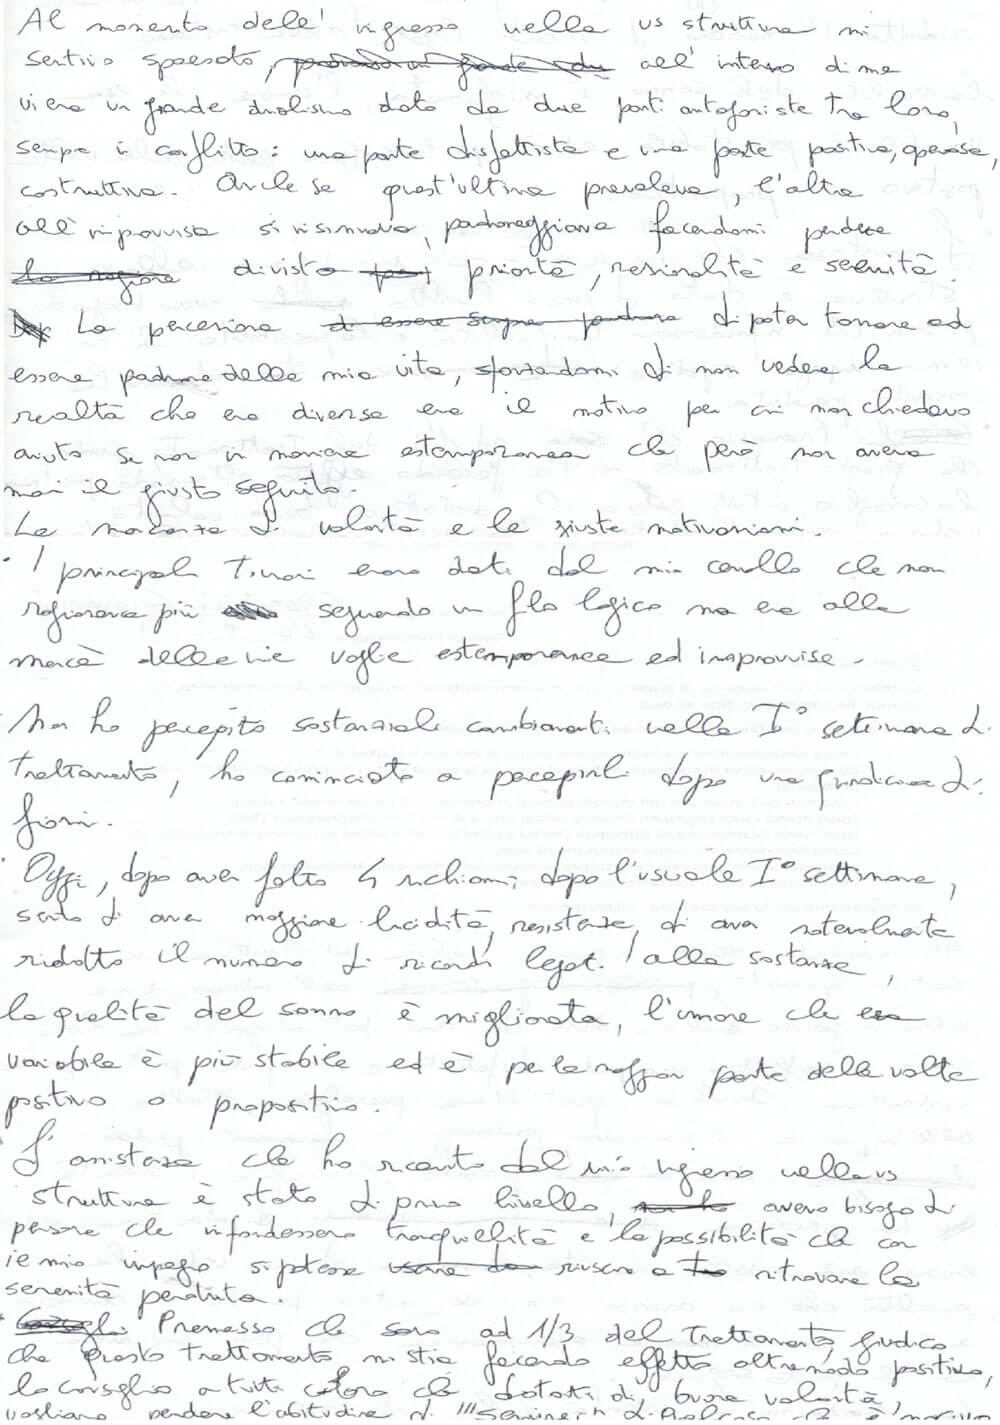 Al momento dell'ingresso nella vs struttura mi
sentivo spaesato, all'interno di me
vi era un grande dualismo dato da due parti antagoniste tra loro,
sempre in conflitto: una parte disfattista e una parte positiva, operosa,
costruttiva. Anche se quest'ultima prevaleva, l'altra
all'improvviso si insinuava, padroneggiava facendomi perdere
la ragione di vista priorità, razionalità e serenità.
La percezione di essere sempre padrone di poter tornare ed
essere padrone della mia vita, sforzandomi di non vedere la
realtà che era diversa era il motivo per cui non chiedevo
aiuto se non in maniera estemporanea che però non aveva
mai il giusto seguito.
La mancanza di volontà e le giuste motivazioni.
I principali timori erano dati dal mio cervello che non
ragionava più seguendo un filo logico ma era alla
mercè delle mie voglie estemporanee ed improvvise.
Non ho percepito sostanziali cambiamenti nella I° settimana di
trattamento, ho cominciato a percepirli dopo una quindicina di
giorni.
Oggi, dopo aver fatto 4 richiami dopo l'usuale I° settimana,
sento di aver maggiore lucidità, resistenza, di aver notevolmente
ridotto il numero di ricordi legati alla sostanza,
la qualità del sonno è migliorata, l'umore che era
variabile è più stabile ed è per la maggior parte delle volte
positivo o propositivo.
L'assistenza che ho ricevuto dal mio ingresso nella vs
struttura è stata di primo livello, avevo bisogno di
persone che infondessero tranquillità e la possibilità che con
il mio impegno si potesse riuscire a ritrovare la
serenità perduta.
Premesso che sono ad 1/3 del trattamento, giudico
che questo trattamento mi stia facendo effetto oltremodo positivo,
lo consiglio a tutti coloro che dotati di buona volontà,
vogliano perdere l'abitudine di